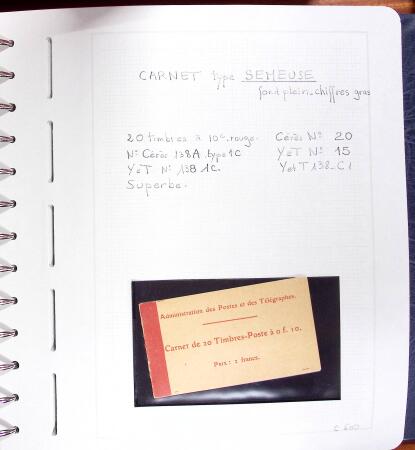 CARNET type SEMEUSE
fond plein_chiffres gras
20 timbres à 10c. rouge. Cérès N° 20
N° Cérès 138A type 1C Y et T N° 15
Y et T N° 138 1c. Y et T 138_C1
Superbe.
Administration des Postes et des Télégraphes.
Carnet de 20 Timbres-Poste à 0 f. 10.
Prix : 2 francs.